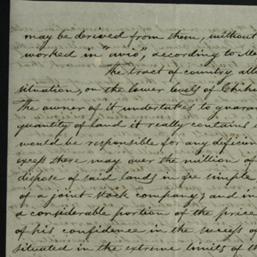 may be derived from them, without
worked in "avio", according to Me
The tract of country all
situation, on the lower levels of Chihu
the owner of it undertakes to guaran
quantity of land it really contains
would be responsible for any deficien
excess there may over the million of
dispose of said lands in fee simple
of a joint-stock company; and in
a considerable portion of the price
of his confidence in the success of
situated in the extreme limits of th